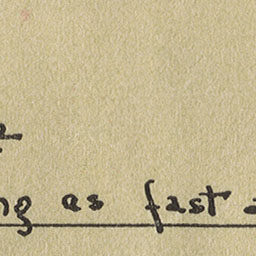 ng as fast